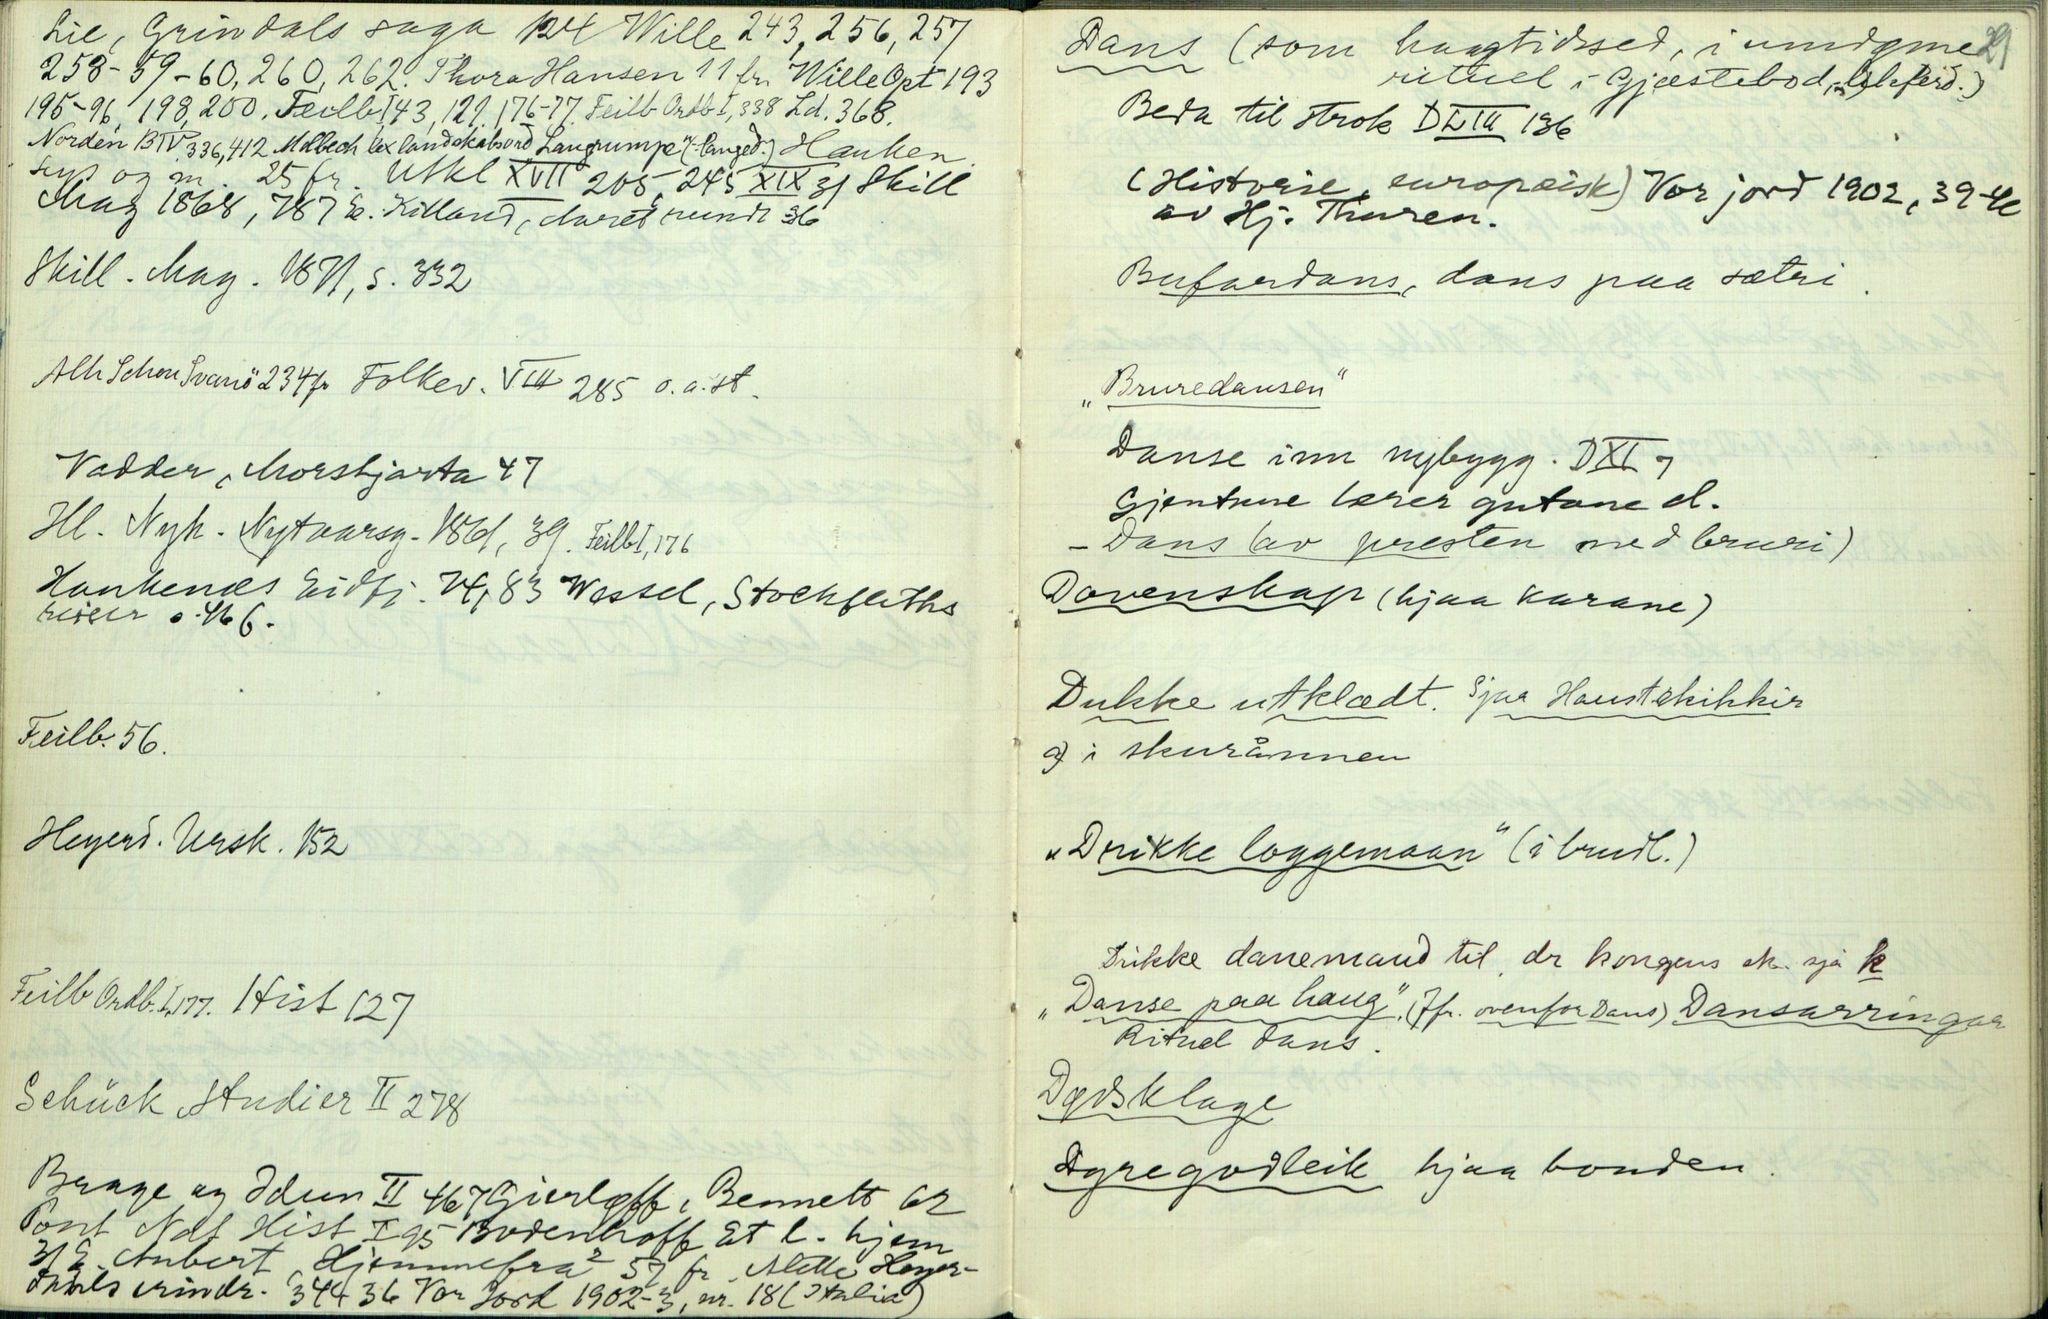 Lie, Grindals saga 124 Wille 243, 256, 257
258-59-60, 260, 262. Thora Hansen 11 fr. Wille Opt 193
195-96, 198, 200. Feilb I 43, 129, 176-77. Feilb Ordb I, 338 Ld. 368.
Norden B IV 336, 412 Molbech lex landskabsord Langrumpe (-langed.) Hauken
og m. 25 fr. Utkl XVII 205, 245 XIX 31 Skill
Mag 1868, 787 E. Kielland, Aaret rundt 36
Skill. Mag. 1871, s. 332
Alb Schou Svanö 234 fr Folkev. VIII 285 o. a. st.
Vadder, Morshjarta 47
Hl. Nyk. Nytaarsg. 1861, 39. Feilb I, 176
Haukenæs Eidfj. 74, 83 Wessel, Stockfleths
reiser s. 46.
Feilb. 56.
Heyerd. Ursk. 152
Feilb Ordb. I, 177. Hist 127
Schück Studier II 278
Brage og Idun II 467 Gierløff, Bennett 62
Pont Nat Hist I 95 Bodenhoff Et l. hjem
31 E. Aubert, Hjemmefra 57 fr. Alette Heyer-
dahls erindr. 34 + 36 Vor Jord 1902-3, nr. 18 (Italia)
29
Dans (som høgtidssed, i umdøme
rituel i Gjæstebod, likferd.)
Beda til strok D LIII 136
(Historie, europæisk) Vor jord 1902, 39-40
av Hj. Thuren.
Bufardans, dans paa sætri.
„Bruredansen"
Danse inn nybygg. D XI 7
Gjentune lærer gutane d.
- Dans (av presten med bruri)
Dovenskap (hjaa karane)
Dukke utklædt. Sjaa Haustekikkir
a) i skurånnen
„Drikke loggemaan" (i brudl.)
Drikke danemand til, dr kongens sk. sjå k
„Danse paa haug", (Jfr. ovenfor Dans) Dansarringar
Rituel dans.
Dødsklage
Dyregodleik hjaa bonden.